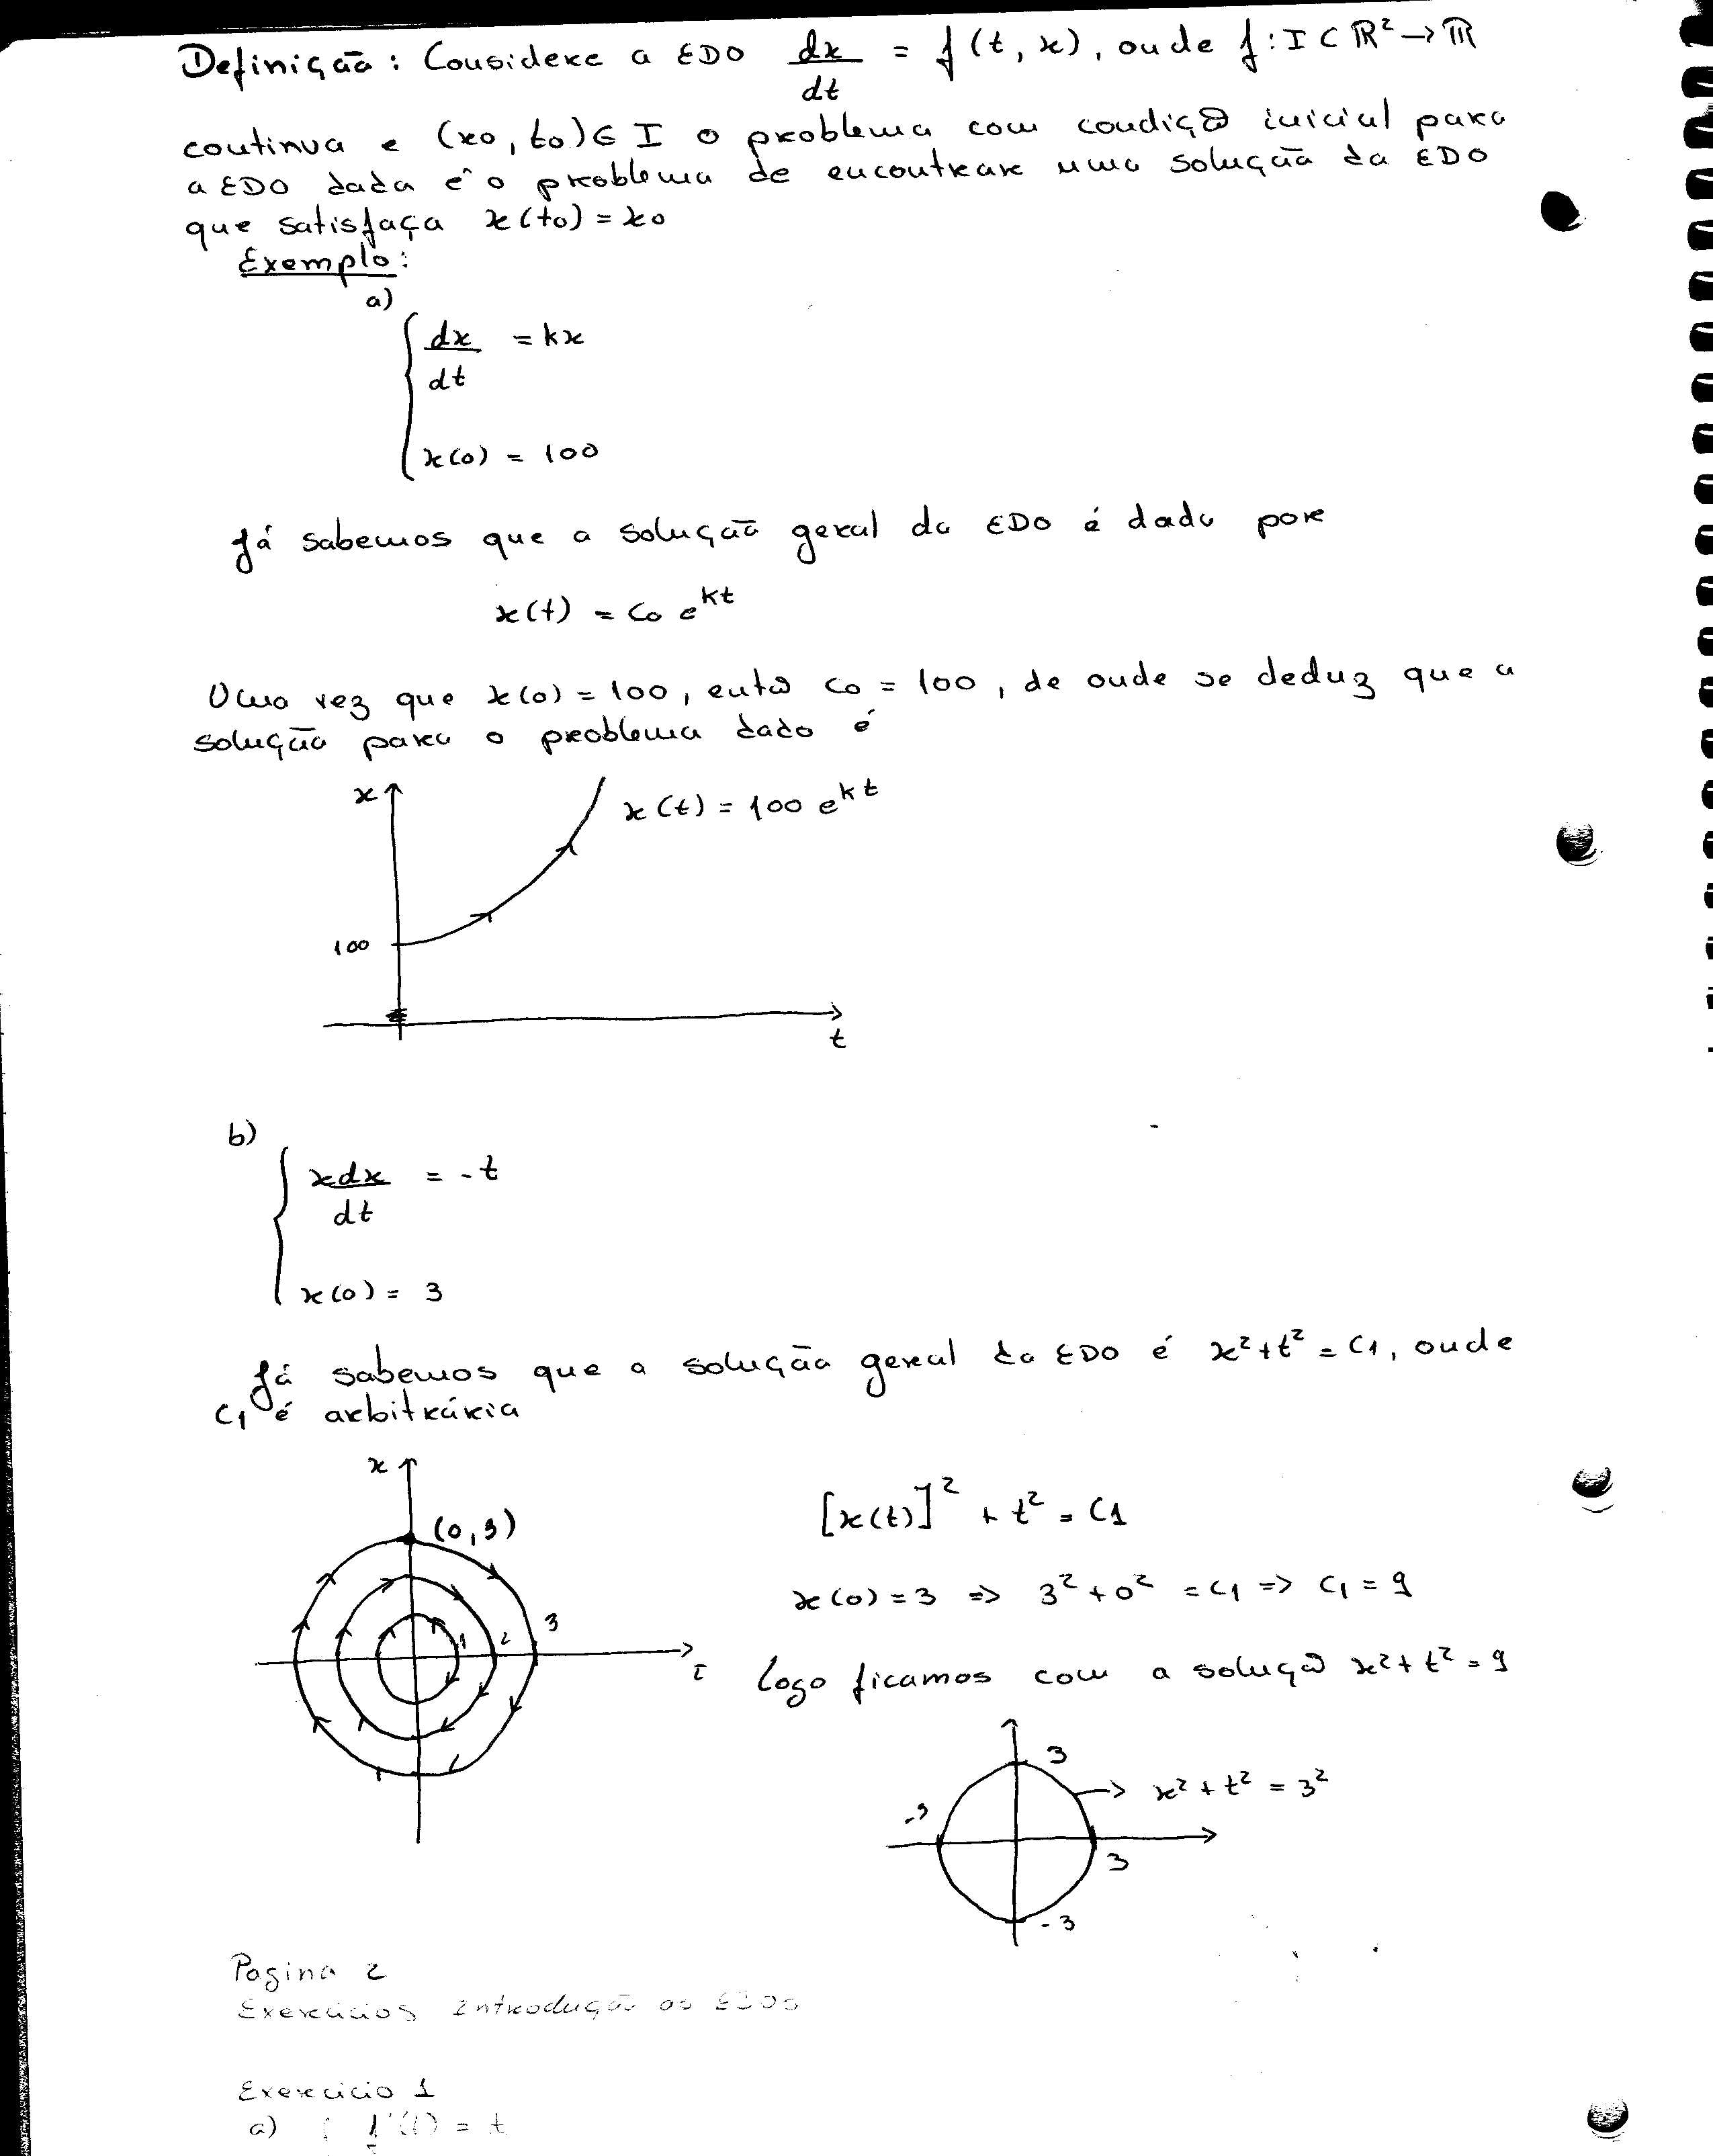 Definição: Considere a EDO dx/dt = f(t, x), onde f: I ⊂ ℝ² → ℝ
continua e (x0, t0) ∈ I o problema com condição inicial para
a EDO dada é o problema de encontrar uma solução da EDO
que satisfaça x(t0) = x0
Exemplo:
a)
dx/dt = kx
x(0) = 100
Já sabemos que a solução geral da EDO é dada por
x(t) = c0 e^kt
Uma vez que x(0) = 100, então c0 = 100, de onde se deduz que a
solução para o problema dado é
x
x(t) = 100 e^kt
100
t
b)
x dx/dt = -t
x(0) = 3
Já sabemos que a solução geral da EDO é x² + t² = C1, onde
C1 é arbitrária
x
(0, 3)
1 2 3
t
[x(t)]² + t² = C1
x(0) = 3 => 3² + 0² = C1 => C1 = 9
Logo ficamos com a solução x² + t² = 9
3
x² + t² = 3²
-3
3
-3
Pagina 2
Exercicios Introdução as EDOs
Exercicio 1
a) f'(t) = t